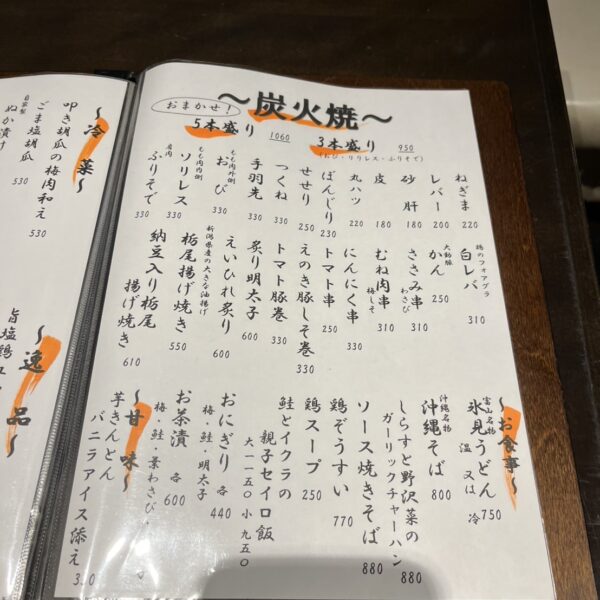 〜炭火焼〜
おまかせ!
5本盛り 1060
3本盛り 950
(おび・ソリレス・ふりそで)
ねぎま 220
レバー 200
砂肝 180
皮 180
丸ハツ 220
ぼんじり 230
せせり 250
つくね 330
手羽先 330
もも肉外側
おび 330
もも肉内側
ソリレス 330
肩肉
ふりそで 330
鶏のフォアグラ
白レバ 310
大動脈
かん 250
ささみ串 310
わさび
むね肉串 310
梅しそ
にんにく串 330
トマト串 250
えのき豚しそ巻 330
トマト豚巻 330
炙り明太子 600
えいひれ炙り 600
新潟県産の大きな油揚げ
栃尾揚げ焼き 550
納豆入り栃尾揚げ焼き 610
〜お食事〜
富山名物
氷見うどん 750
温又は冷
沖縄名物
沖縄そば 800
しらすと野沢菜の
ガーリックチャーハン 880
ソース焼きそば 880
鶏ぞうすい 770
鶏スープ 250
鮭とイクラの
親子セイロ飯
大一一五〇 小九五〇
おにぎり 各440
梅・鮭・明太子
お茶漬 各600
梅・鮭・葉わさび・
〜甘味〜
芋きんとん
バニラアイス添え 350
〜冷菜〜
叩き胡瓜の梅肉和え 530
ごま塩胡瓜 530
自家製
ぬか漬け
〜逸品〜
旨塩鶏